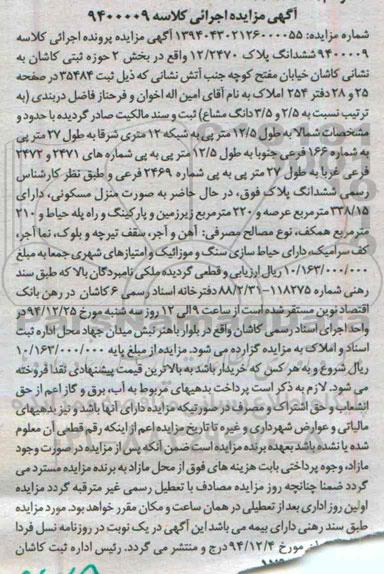 آگهی مزایده اجرائی کلاسه ۹۴۰۰۰۰۹
شماره مزایده: ۱۳۹۴۰۴۳۰۲۱۲۶۰۰۰۰۵۵ آگهی مزایده پرونده اجرائی کلاسه
۹۴۰۰۰۰۹ ششدانگ پلاک ۱۲/۲۴۷۰ واقع در بخش ۲ حوزه ثبتی کاشان به
نشانی کاشان خیابان مفتح کوچه جنب آتش نشانی که ذیل ثبت ۳۵۴۸۴ در صفحه
۲۵ و ۲۸ دفتر ۲۵۴ املاک به نام آقای امین اله اخوان و فرحناز فاضل دربندی (به
ترتیب نسبت به ۲/۵ و ۳/۵ دانگ مشاع) ثبت و سند مالکیت صادر گردیده با حدود و
مشخصات شمالا به طول ۱۲/۵ متر پی به شبکه ۱۲ متری شرقا به طول ۲۷ متر پی
به شماره ۱۶۶ فرعی جنوبا به طول ۱۲/۵ متر پی به پی شماره های ۲۴۷۱ و ۲۴۷۲
فرعی غربا به طول ۲۷ متر پی به پی شماره ۲۴۶۹ فرعی و طبق نظر کارشناس
رسمی ششدانگ پلاک فوق، در حال حاضر به صورت منزل مسکونی، دارای
۳۳۸/۱۵ مترمربع عرصه و ۲۲۰ مترمربع زیرزمین و پارکینگ و راه پله حیاط و ۲۱۰
مترمربع همکف، نوع مصالح مصرفی: آهن و آجر، سقف تیرچه و بلوک، نما آجر،
کف سرامیک، دارای حیاط سازی سنگ و موزائیک و امتیازهای شهری جمعا به مبلغ
۱۰/۱۶۳/۰۰۰/۰۰۰ ریال ارزیابی و قطعی گردیده ملکی نامبردگان بالا که طبق سند
رهنی شماره ۱۱۸۲۷۵-۸۸/۲/۳۱ دفترخانه اسناد رسمی ۶ کاشان در رهن بانک
اقتصاد نوین مستقر شده است از ساعت ۹ الی ۱۲ روز سه شنبه مورخ ۹۴/۱۲/۲۵ در
واحد اجرای اسناد رسمی کاشان واقع در بلوار باهنر نبش میدان جهاد محل اداره ثبت
اسناد و املاک به مزایده گزارده می شود. مزایده از مبلغ پایه ۱۰/۱۶۳/۰۰۰/۰۰۰
ریال شروع و به هر کس که خریدار باشد به بالاترین قیمت پیشنهادی نقدا فروخته
می شود. لازم به ذکر است پرداخت بدهیهای مربوط به آب، برق و گاز اعم از حق
انشعاب و حق اشتراک و مصرف در صورتیکه مزایده دارای آنها باشد و نیز بدهیهای
مالیاتی و عوارض شهرداری و غیره تا تاریخ مزایده اعم از اینکه رقم قطعی آن معلوم
شده یا نشده باشد بعهده برنده مزایده است ضمن آنکه پس از مزایده در صورت وجود
مازاد، وجوه پرداختی بابت هزینه های فوق از محل مازاد به برنده مزایده مسترد می
گردد ضمنا چنانچه روز مزایده مصادف با تعطیل رسمی غیر مترقبه گردد مزایده
اولین روز اداری بعد از تعطیلی در همان ساعت و مکان مقرر خواهد بود. مورد مزایده
طبق سند رهنی دارای بیمه می باشد این آگهی در یک نوبت در روزنامه نسل فردا
مورخ ۹۴/۱۲/۴ درج و منتشر می گردد. رئیس اداره ثبت کاشان